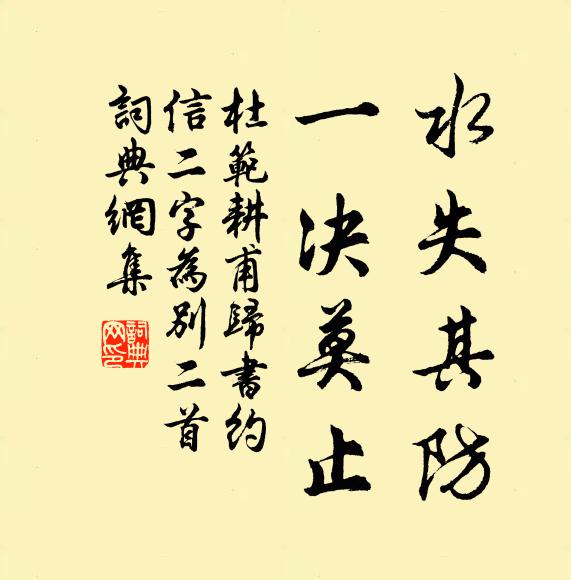 水失其防
一决莫止
杜範耕甫歸書約
信二字為別二首
詞典網集
詞典
网印